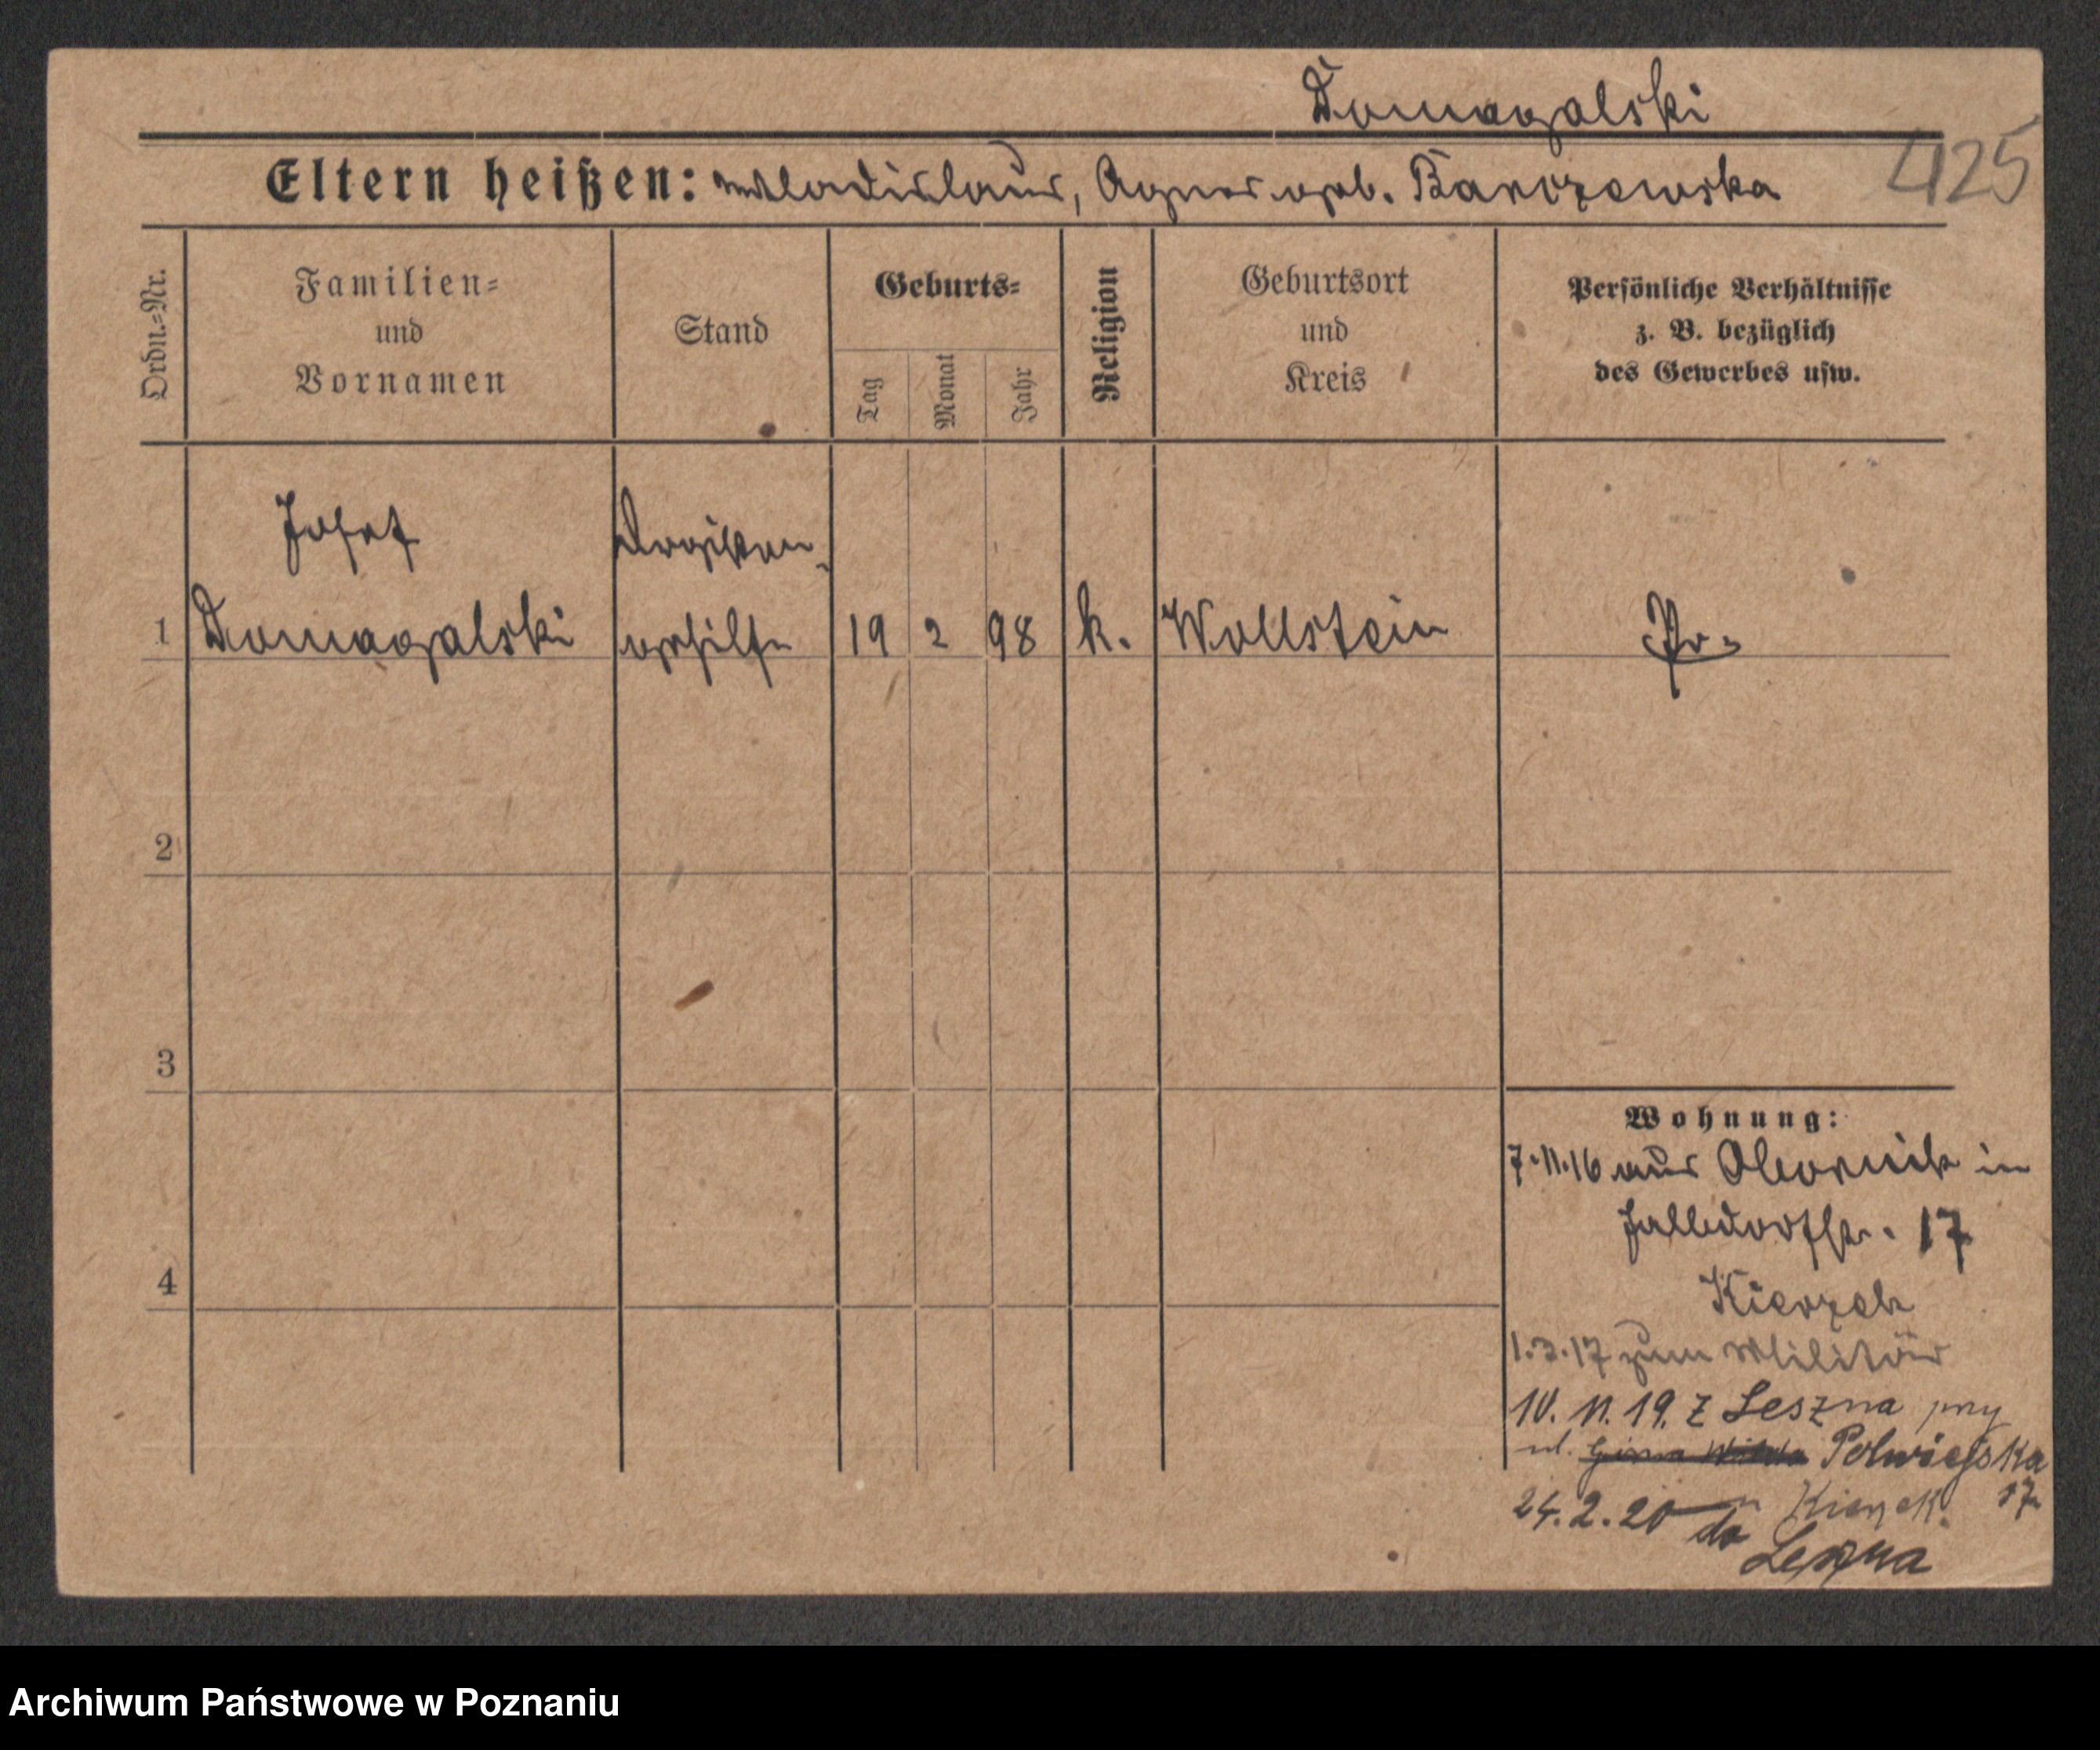 Domagalski
425
Eltern heißen: Wladislaus, Agnes geb. Barczewska
Ordn.-Nr.
Familien-
und
Vornamen
Stand
Geburts-
Tag
Monat
Jahr
Religion
Geburtsort
und
Kreis
Persönliche Verhältnisse
z. B. bezüglich
des Gewerbes usw.
Josef
Domagalski
Drogisten-
gehilfe
1
19
2
98
k.
Wollstein
Pr.
2
3
4
Wohnung:
7.11.16 aus Obornik in
Halbdorfstr. 17
Kierzek
1.3.17 zum Militär
10. 11. 19. z Leszna przy
ul. Półwiejska
17
Kierzek.
24.2.20 do
Leszna
Archiwum Państwowe w Poznaniu